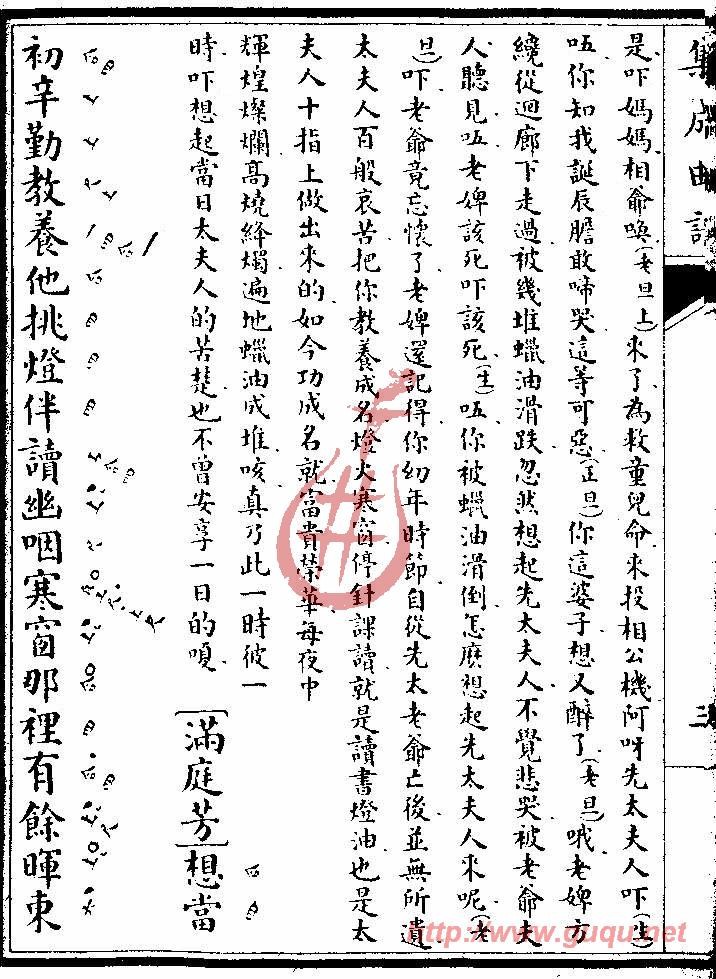 集成曲譜
三
是吓媽媽相爺喚(老旦上)來了為救童兒命來投相公機阿呀先太夫人吓(生)
唔你知我誕辰膽敢啼哭這等可惡(正旦)你這婆子想又醉了(老旦)哦老婢方
纔從迴廊下走過被幾堆蠟油滑跌忽然想起先太夫人不覺悲哭被老爺夫
人聽見唔老婢該死吓該死(生)唔你被蠟油滑倒怎麽想起先太夫人來呢(老
旦)吓老爺竟忘懷了老婢還記得你幼年時節自從先太老爺亡後並無所遺
太夫人百般哀苦把你教養成名燈火寒窗停針課讀就是讀書燈油也是太
夫人十指上做出來的如今功成名就富貴榮華每夜中
輝煌燦爛高燒絳燭遍地蠟油成堆咳真乃此一時彼一
時吓想起當日太夫人的苦楚也不曾安享一日的嗄
[滿庭芳]想當
初辛勤教養他挑燈伴讀幽咽寒窗那裡有餘暉東
http://www.guqu.net